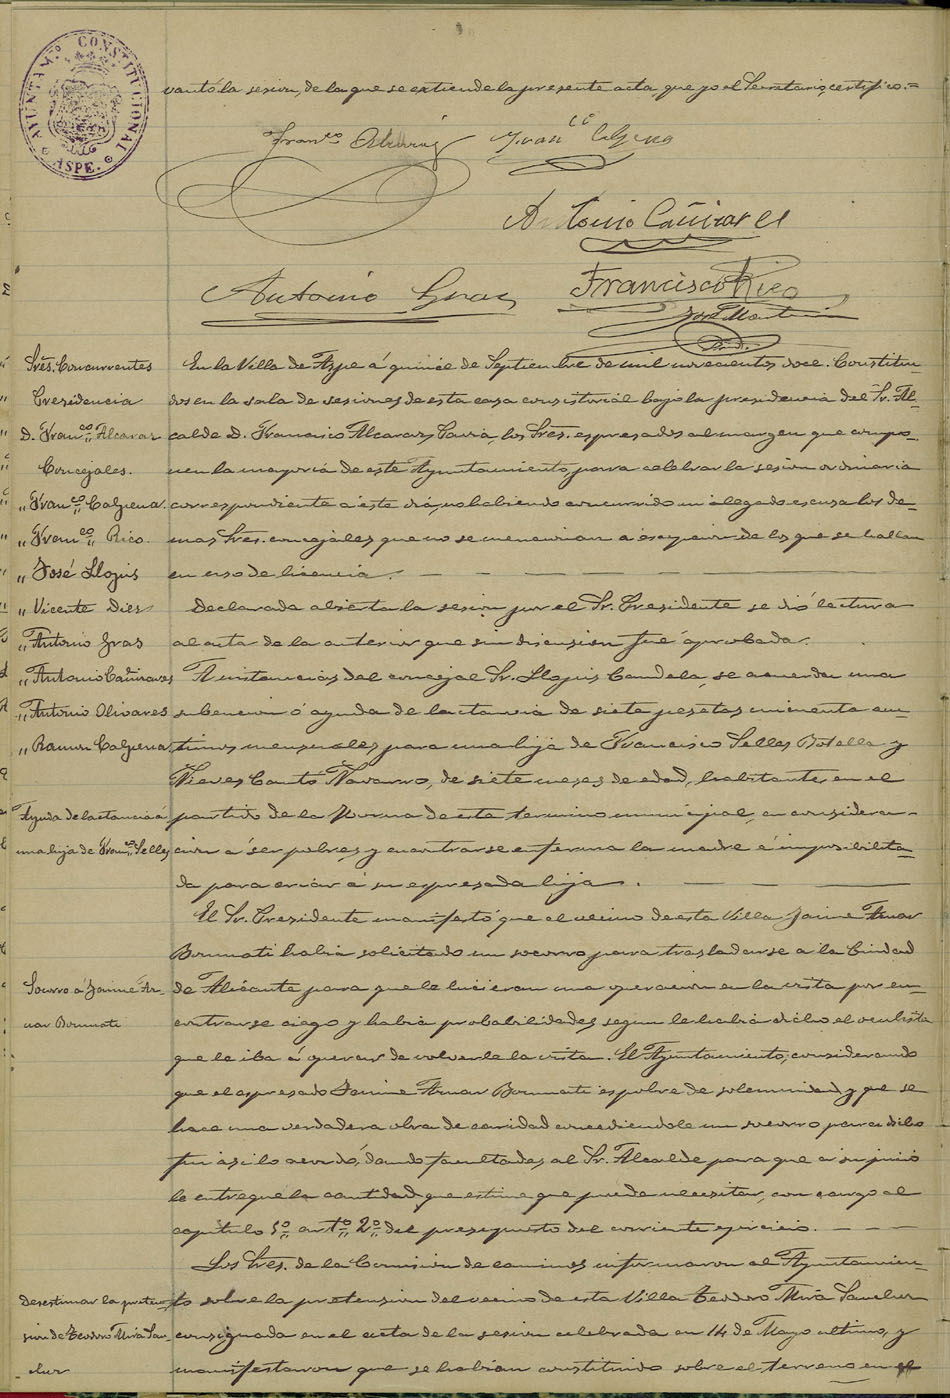 AYUNTAMTO CONSTITUCIONAL
ASPE.
vantó la sesion, de la que se extiende la presente acta, que yo el Secretario, certifico.=
Franco Franco Calpena
Antonio Cañizares
Antonio Gras Francisco Rico
José
Sres. Concurrentes
Presidencia
D. Franco Alcaraz
Concejales.
" Franco Calpena.
" Franco Rico.
" José Llopis
" Vicente Dies
" Antonio Gras
" Antonio Cañizares
" Antonio Olivares
" Ramon Calpena
Ayuda de lactancia á
una hija de Franco Selles
Socorro á Jaime Az-
nar Bonmati
Desestimar la preten-
sion de Teodoro Mira San-
chez
En la Villa de Aspe á quince de Septiembre de mil novecientos doce. Constitui-
dos en la sala de sesiones de esta casa consistorial bajo la presidencia del Sr. Al-
calde D. Francisco Alcaraz, los Sres. espresados al margen que compo-
nen la mayoria de este Ayuntamiento, para celebrar la sesion ordinaria
correspondiente á este dia, no habiendo concurrido ni alegado escusa los de-
mas Sres. concejales que no se mencionan á escepcion de los que se hallan
en uso de licencia.
Declarada abierta la sesion por el Sr. Presidente se dió lectura
al acta de la anterior que sin discusion fué aprobada.
A instancias del concejal Sr. Llopis Candela, se acuerda una
subencion ó ayuda de lactancia de siete pesetas cincuenta cen-
timos mensuales para una hija de Francisco Selles Botella y
Nieves Cantó Navarro, de siete meses de edad, habitantes en el
partido de la de este termino municipal, en considera-
cion á ser pobres, y encontrarse enferma la madre é imposibilita-
da para criar á su espresada hija.
El Sr. Presidente manifestó que el vecino de esta Villa Jaime Aznar
Bonmati habia solicitado un socorro para trasladarse a la Ciudad
de Alicante para que le hicieran una operacion en la vista por en-
contrarse ciego y habia probabilidades, segun le habia dicho el oculista
que le iba á operar de volverle la vista. El Ayuntamiento, considerando
que el espresado Jaime Aznar Bonmati es pobre de solemnidad, y que se
hace una verdadera obra de caridad concediendole un socorro para dicho
fin asi lo acordó, dando facultades al Sr. Alcalde para que á su juicio
le entregue la cantidad que estime que puede necesitar, con cargo al
capitulo 5º artº 2º del presupuesto del corriente ejercicio.
Los Sres. de la Comision de caminos informaron al Ayuntamien-
to sobre la pretension del vecino de esta Villa Teodoro Mira Sanchez
consignada en el acta de la sesion celebrada en 14 de Mayo ultimo, y
manifestaron que se habian constituido sobre el terreno en el